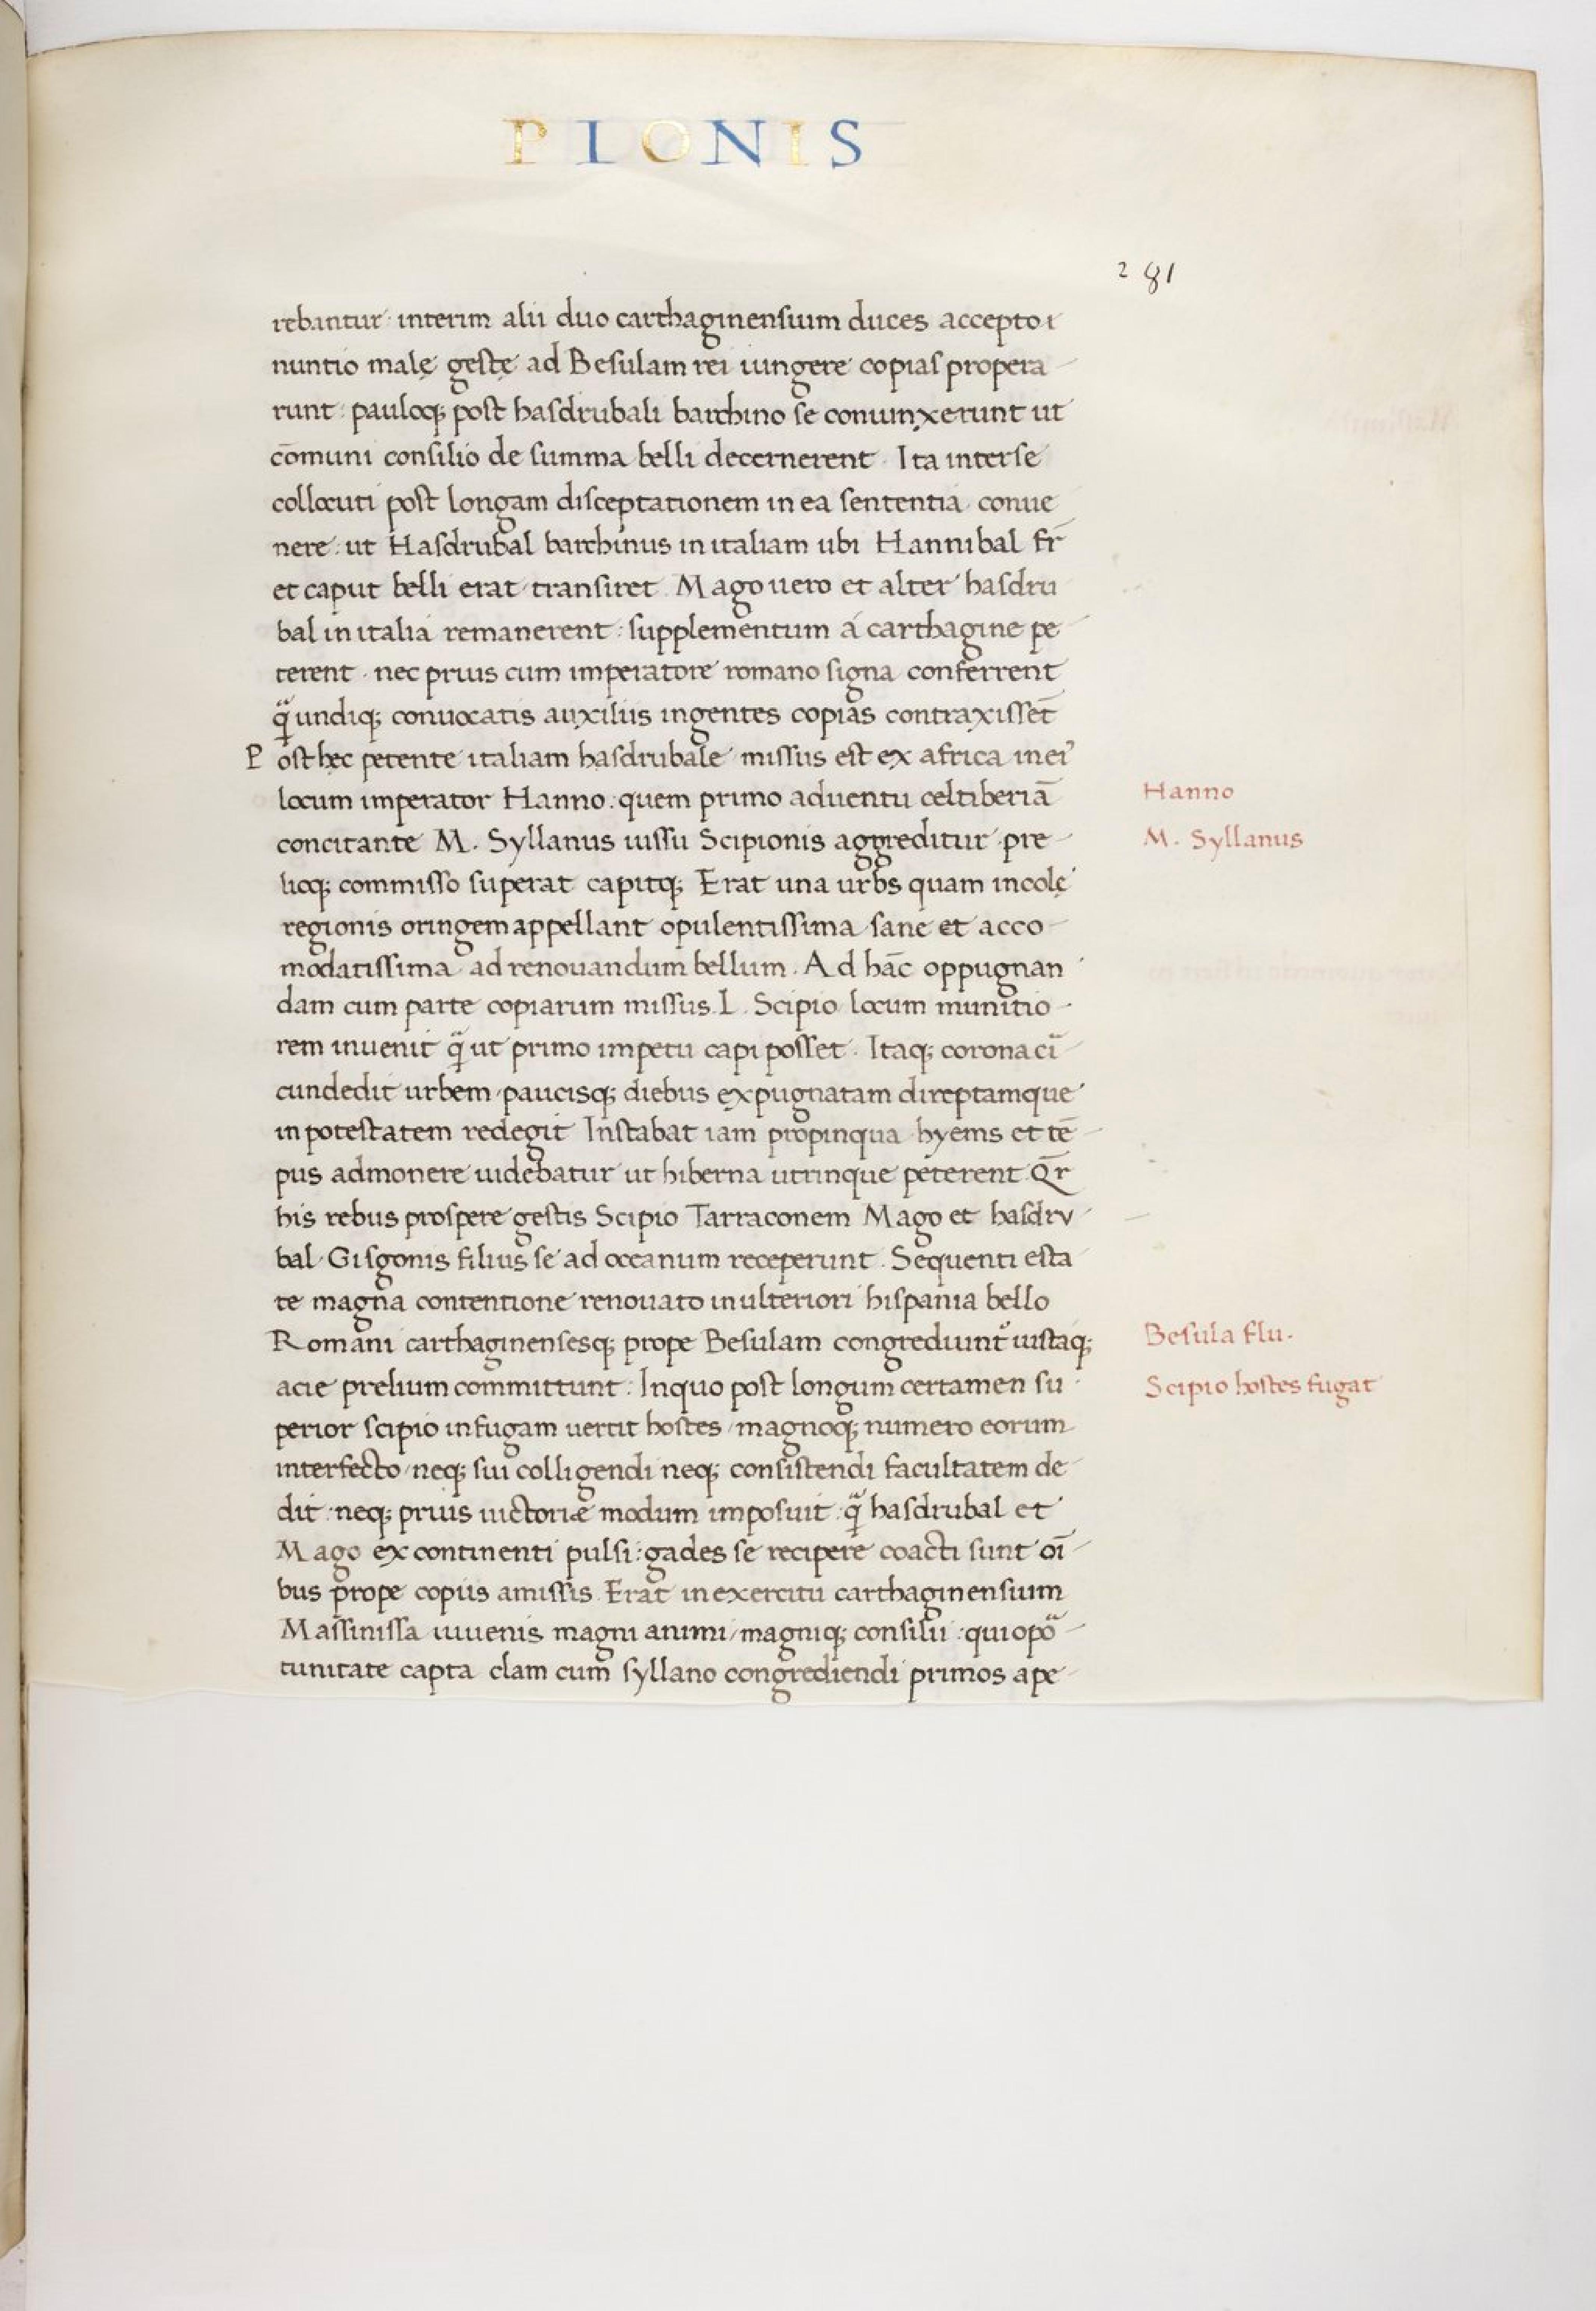 PIONIS
281
rebantur· interim alii duo carthaginensium duces accepto
nuntio malę gestę ad Besulam rei iungere copias propera-
runt: pauloq; post hasdrubali barchino se coniunxerunt ut
cōmuni consilio de summa belli decernerent. Ita interse
collocuti post longam disceptationem in ea sententia conue
nere: ut Hasdrubal barchinus in italiam ubi Hannibal fr̄
et caput belli erat· transiret. Mago uero et alter hasdru
bal in italia remanerent: supplementum á carthagine pe
terent· nec prius cum imperatore romano signa conferrent
q̃ undiq; conuocatis auxiliis ingentes copias contraxissēt
Post hęc petente italiam hasdrubale missus est ex africa in ei᾿
locum imperator Hanno: quem primo aduentu celtiberiā
Hanno
concitante M. Syllanus iussu Scipionis aggreditur· pre-
M. Syllanus
lioq; commisso superat capitq; Erat una urbs quam incolę
regionis oringem appellant opulentissima sane et acco-
modatissima ad renouandum bellum. Ad hāc oppugnan
dam cum parte copiarum missus L. Scipio locum munitio-
rem inuenit q̃ ut primo impetu capi posset. Itaq; corona cĩ-
cundedit urbem· paucisq; diebus expugnatam direptamque
in potestatem redegit Instabat iam propinqua hyems et tē-
pus admonere uidebatur ut hiberna utrinque peterent. Qr̄
his rebus prospere gestis Scipio Tarraconem Mago et hasdrv-
bal· Gisgonis filius se ad oceanum receperunt. Sequenti esta
te magna contentione renouato in ulteriori hispania bello
Romani carthaginensesq; prope Besulam congrediunt᷑ iustaq;
Besula flu.
acie prelium committunt: In quo post longum certamen su
Scipio hostes fugat
perior scipio in fugam uertit hostes/ magnoq; numero eorum
interfecto/ neq; sui colligendi neq; consistendi facultatem de
dit· neq; prius uictoriæ modum imposuit: q̃ hasdrubal et
Mago ex continenti pulsi: gades se recipere coacti sunt oī-
bus prope copiis amissis. Erat in exercitu carthaginensium
Massinissa iuuenis magni animi/ magniq; consilii: qui opo᷑-
tunitate capta clam cum syllano congrediendi primos ape-